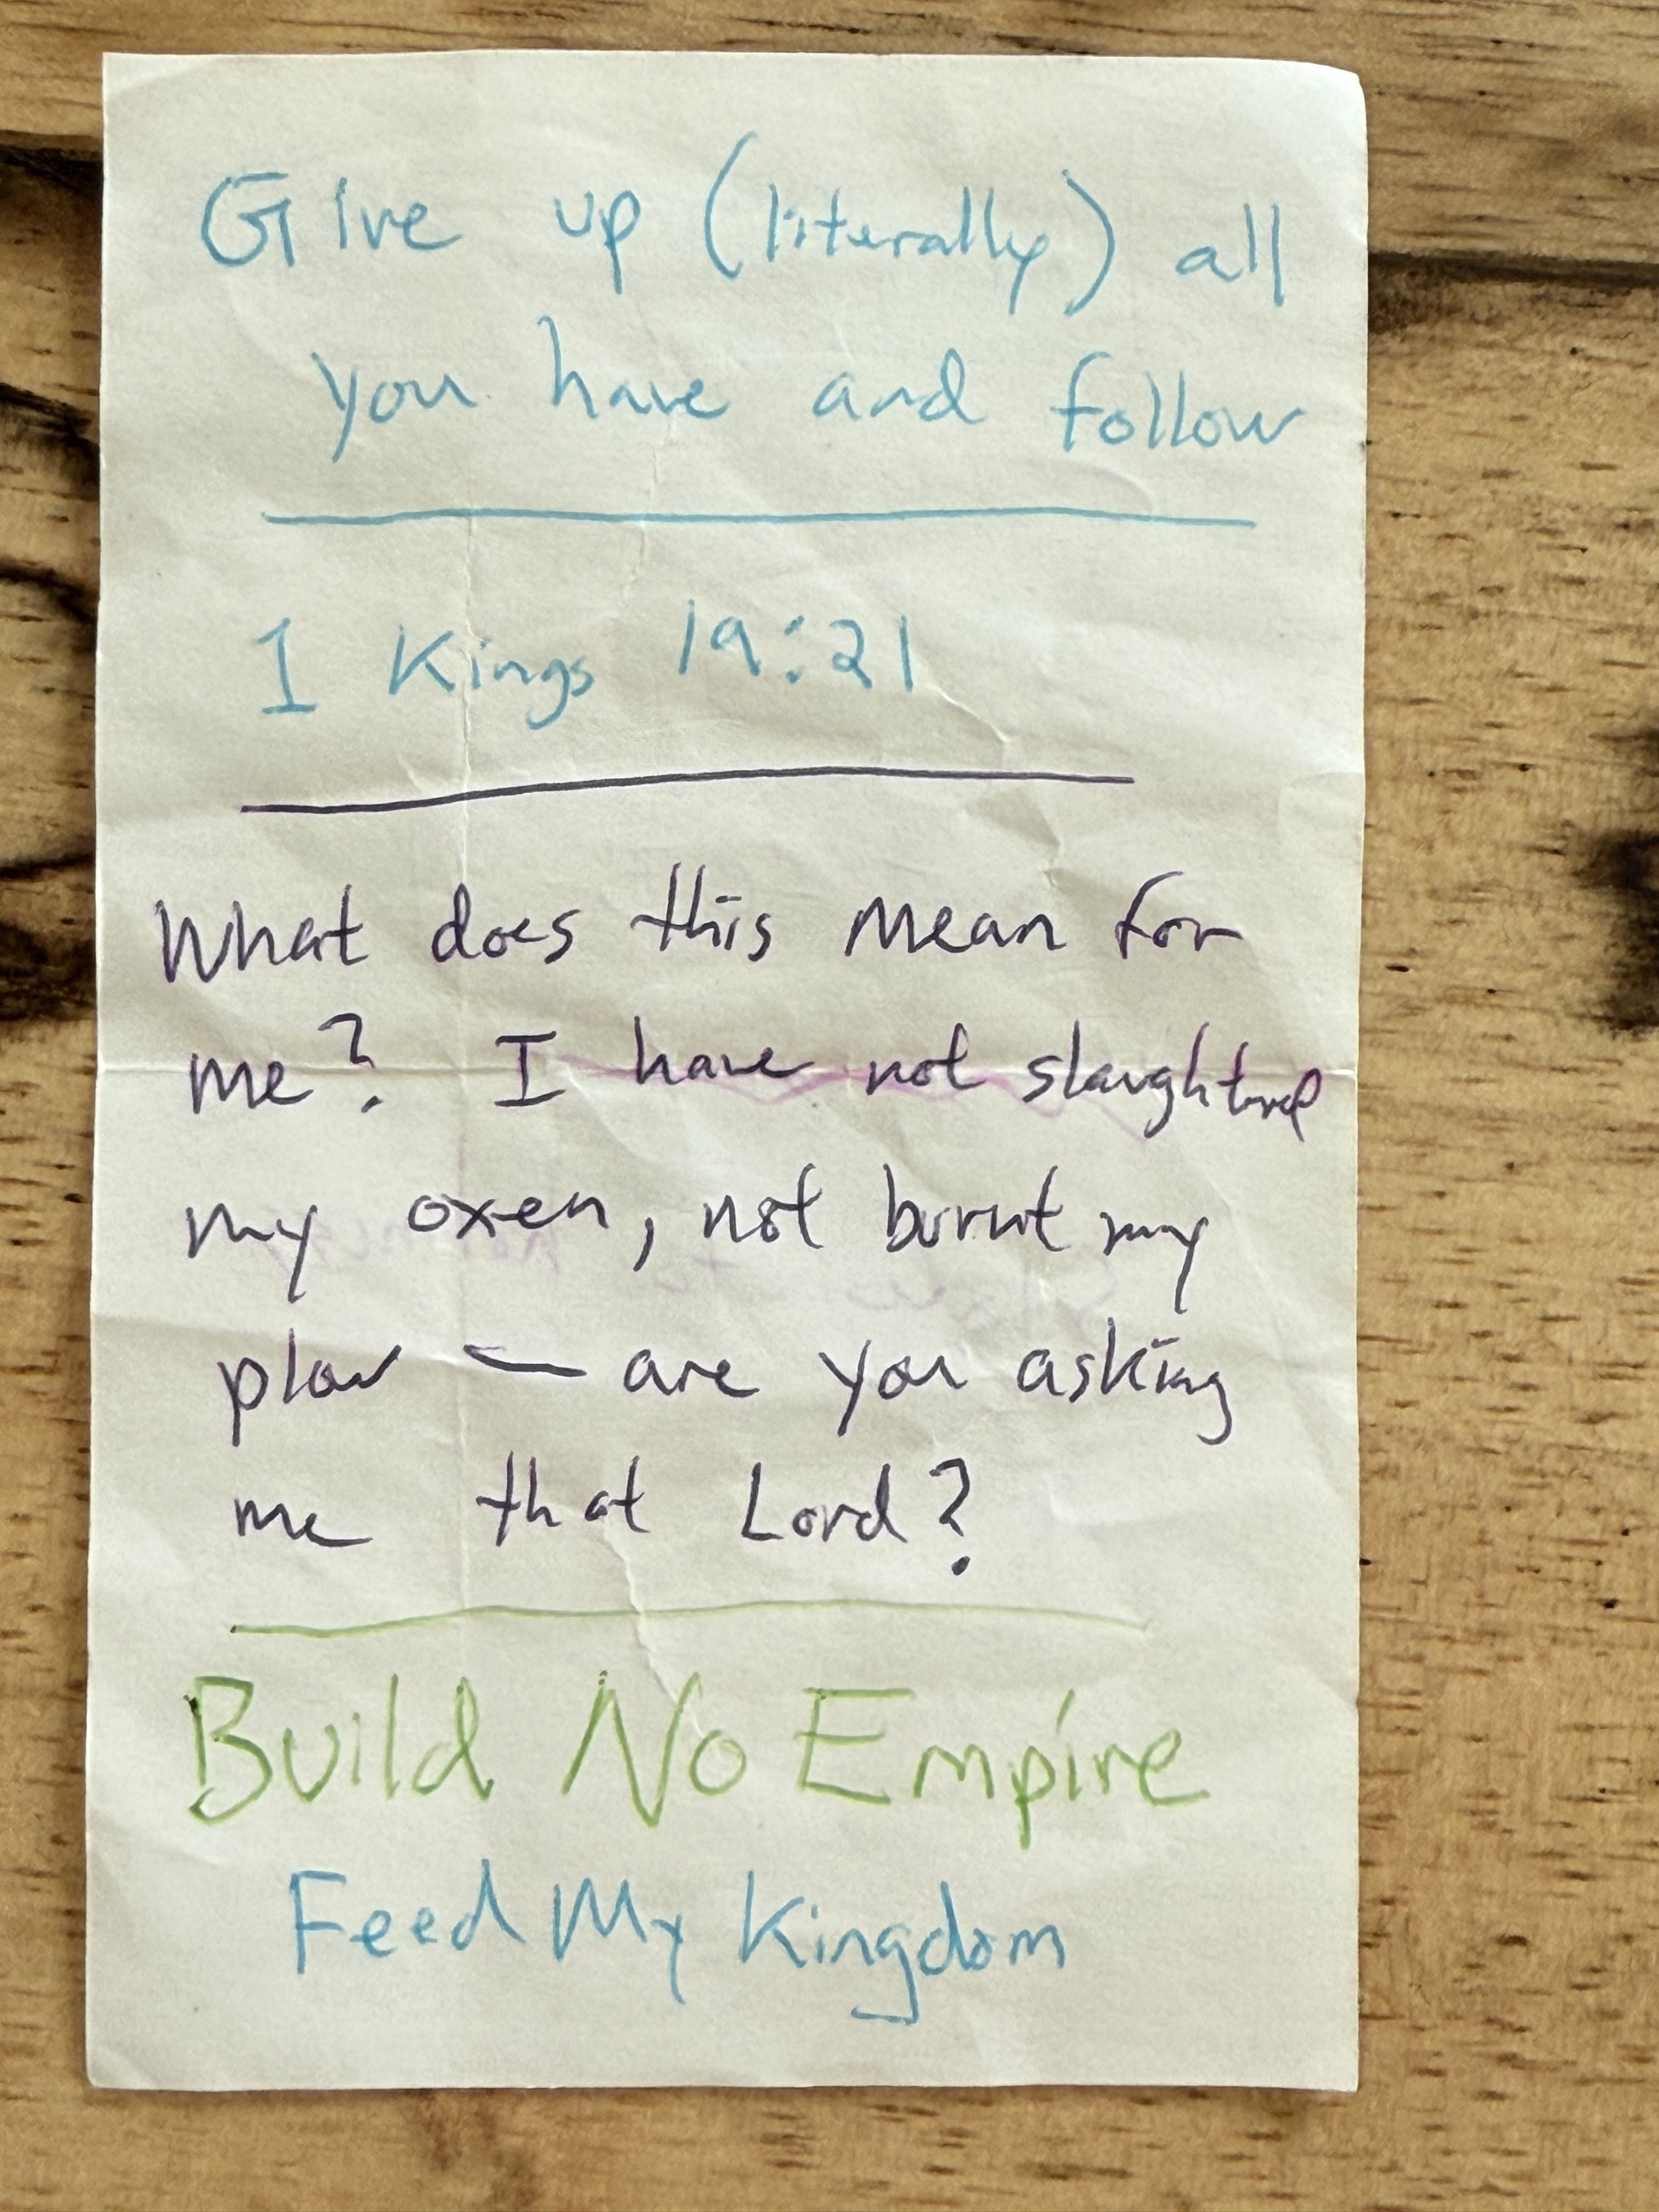 Give up (literally) all
you have and follow
1 Kings 19:21
What does this mean for
me? I have not slaughtered
my oxen, not burnt my
plow — are you asking
me that Lord?
Build No Empire
Feed My Kingdom